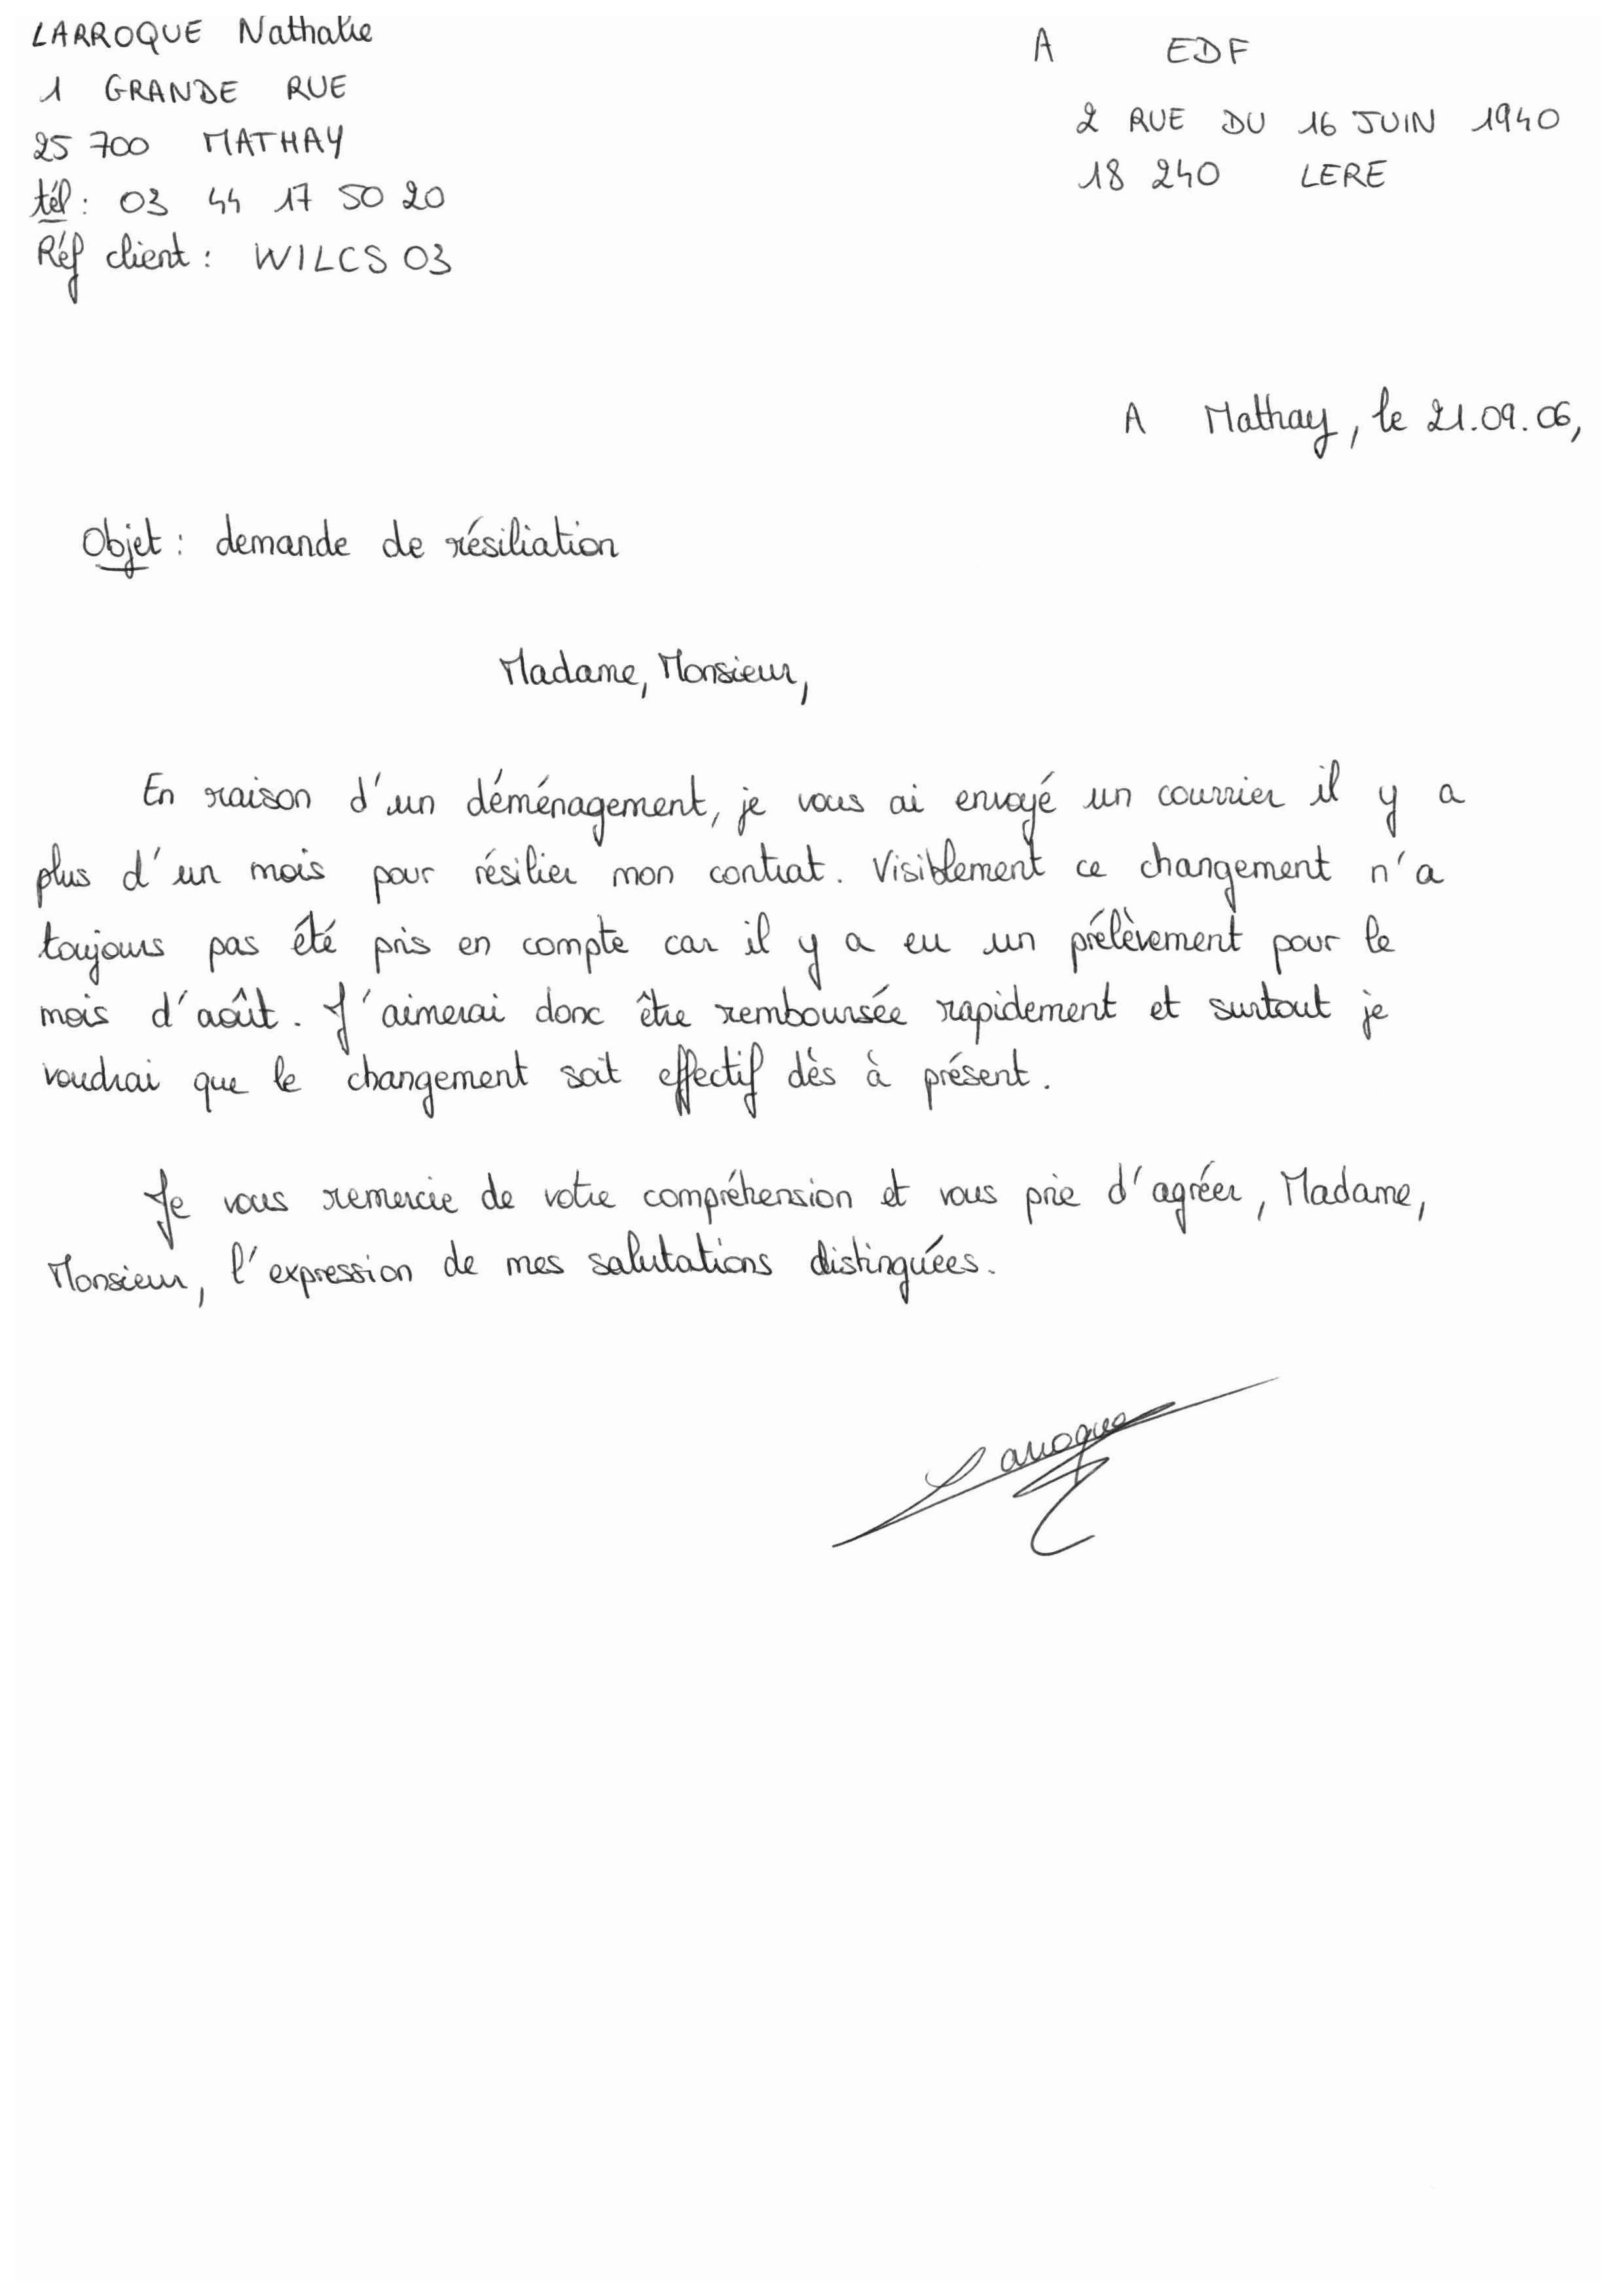 LARROQUE Nathalie
1 GRANDE RUE
25 700 MATHAY
tél : 03 44 17 50 20
Réf client : WILCS 03
A EDF
2 RUE DU 16 JUIN 1940
18 240 LERE
A Mathay, le 21.09.06,
Objet : demande de résiliation
Madame, Monsieur,
En raison d'un déménagement, je vous ai envoyé un courrier il y a
plus d'un mois pour résilier mon contrat. Visiblement ce changement n'a
toujours pas été pris en compte car il y a eu un prélèvement pour le
mois d'août. J'aimerai donc être remboursée rapidement et surtout je
voudrai que le changement soit effectif dès à présent.
Je vous remercie de votre compréhension et vous prie d'agréer, Madame,
Monsieur, l'expression de mes salutations distinguées.
Larroque